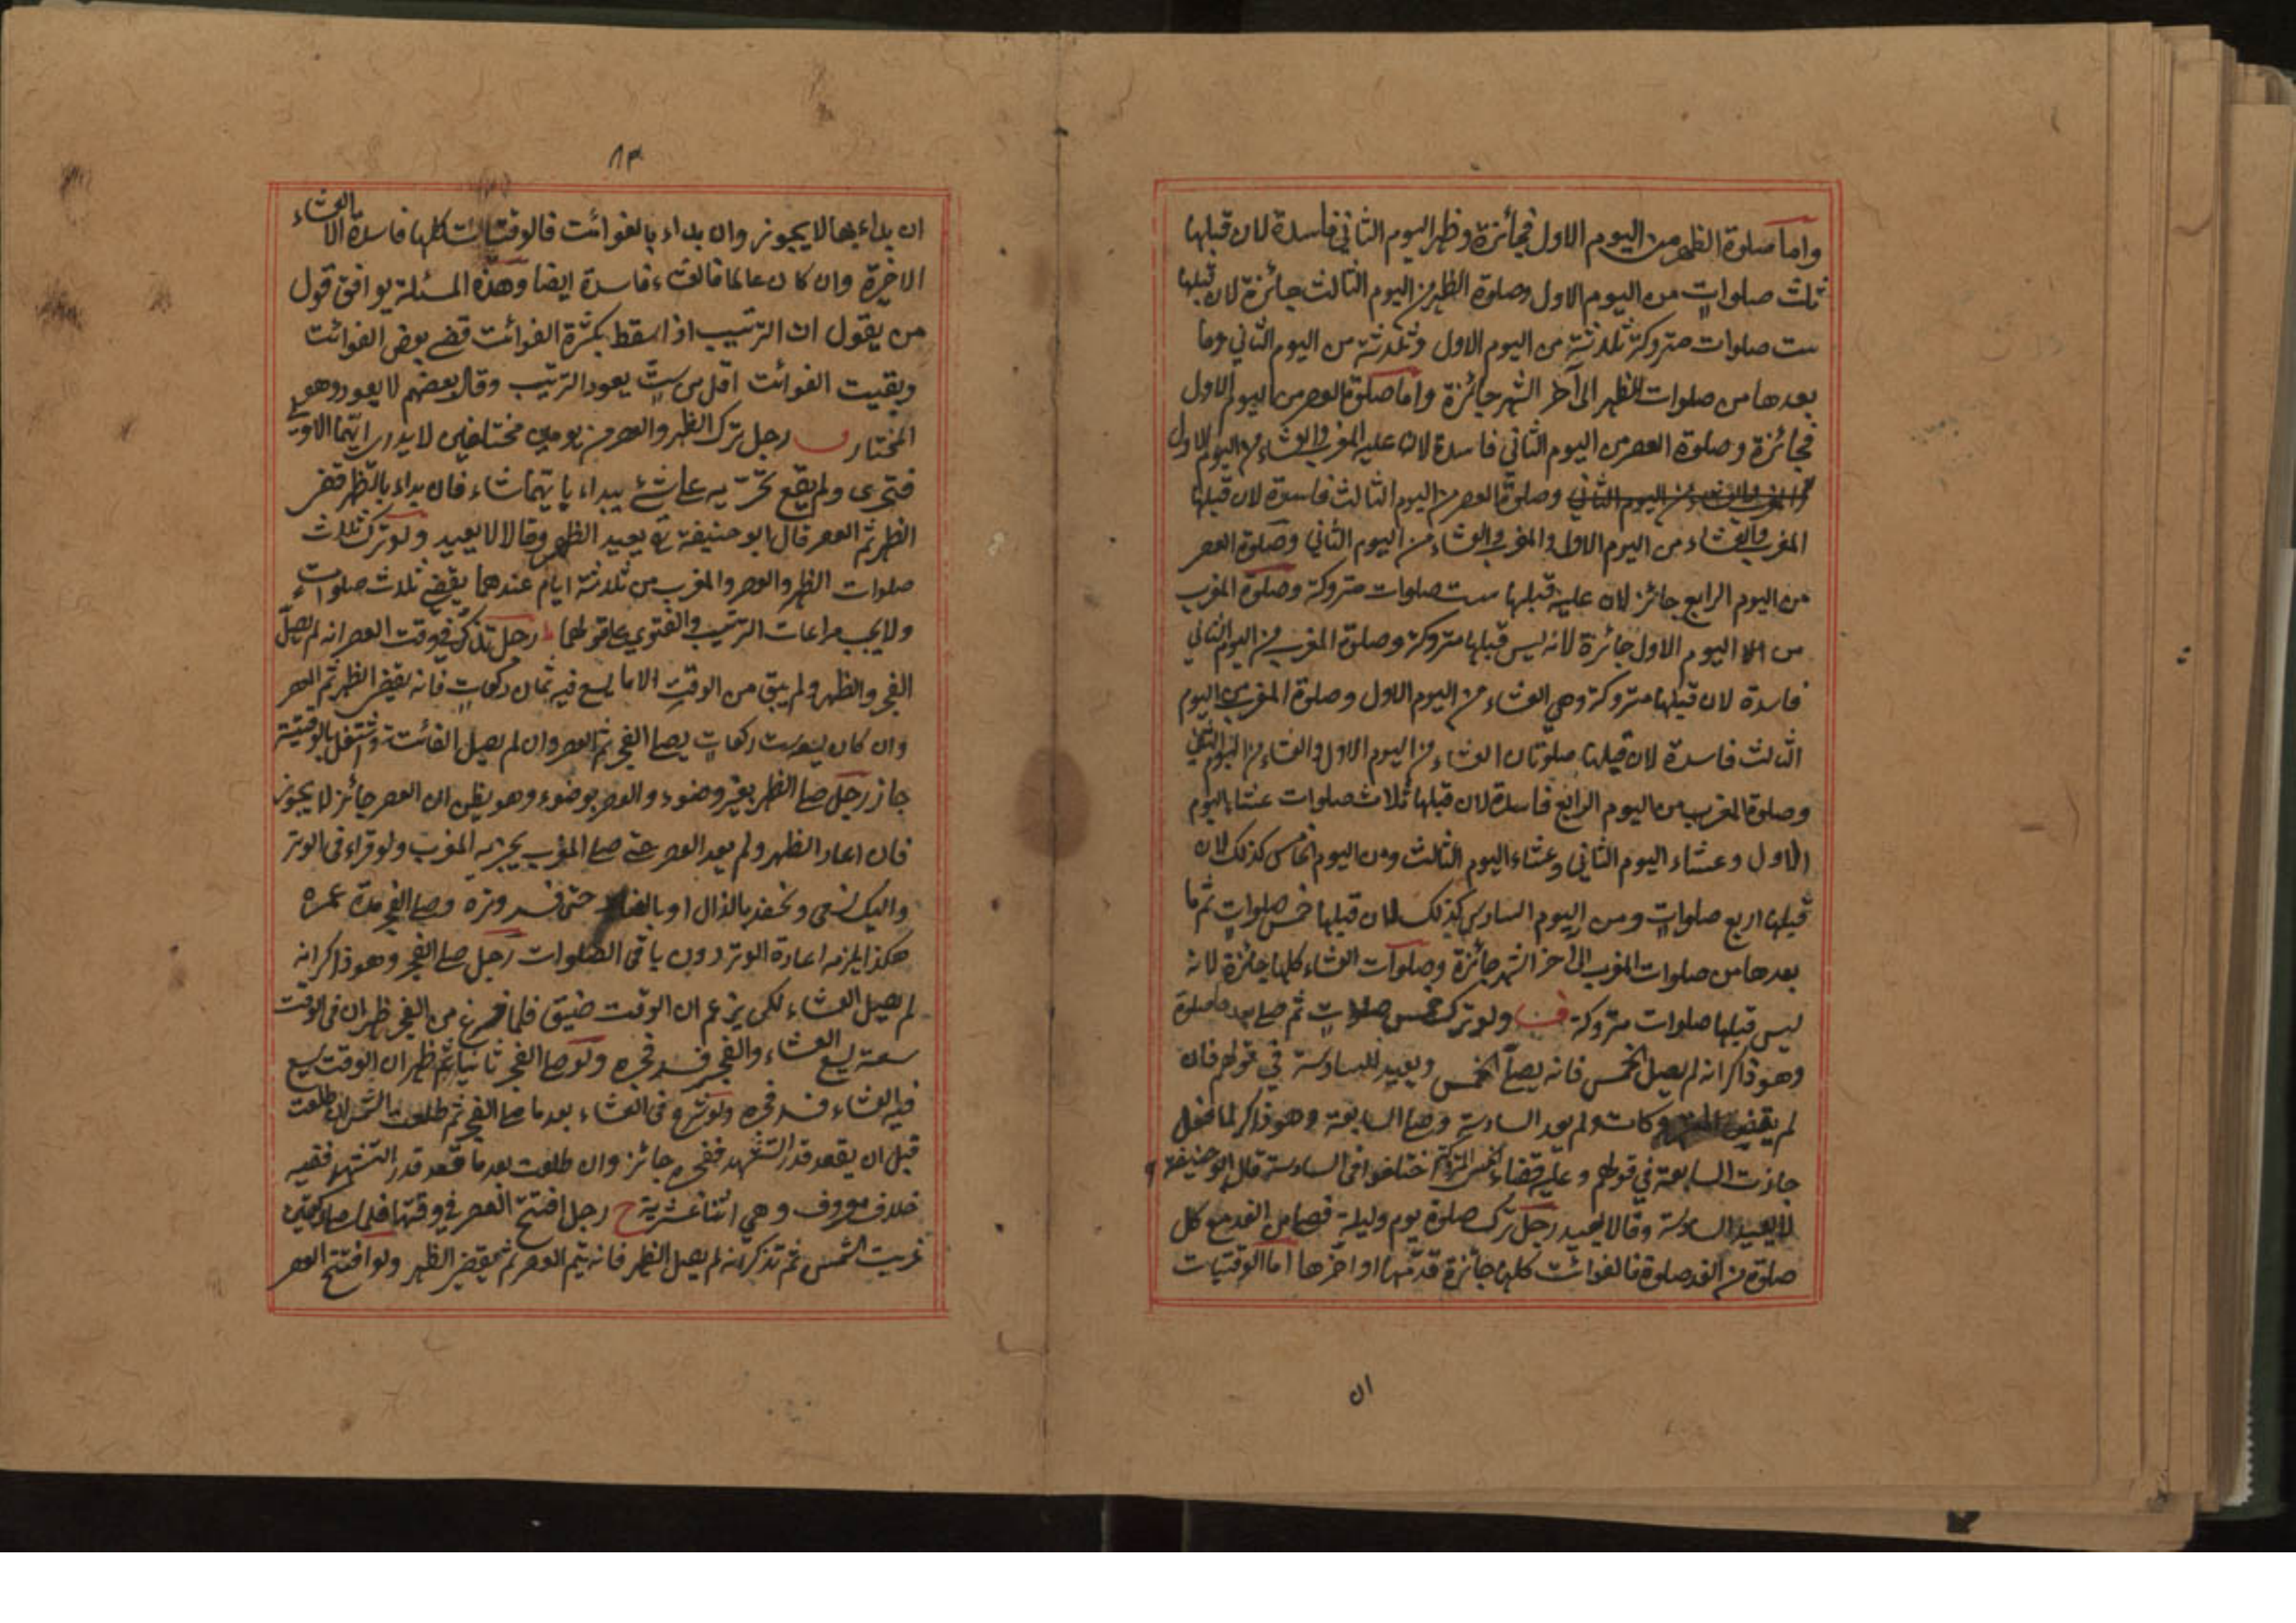 واما صلوة الظهر من اليوم الاول فجائزة وظهر اليوم الثاني فاسدة لان قبلها
ثلث صلوات من اليوم الاول وصلوة الظهر من اليوم الثالث جائزة لان قبلها
ست صلوات متروكة ثلاثة من اليوم الاول وثلاثة من اليوم الثاني وما
بعدها من صلوات الظهر الى آخر الشهر جائزة واما صلوة العصر من اليوم الاول
فجائزة وصلوة العصر من اليوم الثاني فاسدة لان عليه المغرب والعشاء من اليوم الاول
وصلوة العصر من اليوم الثالث فاسدة لان قبلها
المغرب والعشاء من اليوم الاول والمغرب والعشاء من اليوم الثاني وصلوة العصر
من اليوم الرابع جائز لان عليه قبلها ست صلوات متروكة وصلوة المغرب
من اليوم الاول جائزة لانه ليس قبلها متروكة وصلوة المغرب من اليوم الثاني
فاسدة لان قبلها متروكة وهي العشاء من اليوم الاول وصلوة المغرب من اليوم
الثالث فاسدة لان قبلها صلوتان العشاء من اليوم الاول والعشاء من اليوم الثاني
وصلوة المغرب من اليوم الرابع فاسدة لان قبلها ثلاث صلوات عشاء اليوم
الاول وعشاء اليوم الثاني وعشاء اليوم الثالث ومن اليوم الخامس كذلك لان
قبلها اربع صلوات ومن اليوم السادس كذلك لان قبلها خمس صلوات ثم ما
بعدها من صلوات المغرب الى اخر الشهر جائزة وصلوات العشاء كلها جائزة لانه
ليس قبلها صلوات متروكة ولو ترك خمس صلوات ثم صلى بعدها صلوة
وهو ذاكر انه لم يصل الخمس فانه يصلي الخمس ويعيد السادسة في قولهم فان
لم يقض وكات ولم يعد السادسة وصلى السابعة وهو ذاكر لما فعل
جازت السابعة في قولهم وعليه قضاء الخمس المتروكة اختلفوا في السادسة قال ابو حنيفة
لا يعيد السادسة وقالا يعيد رجل ترك صلوة يوم وليلة فصلى من الغد مع كل
صلوة من الغد صلوة فالفوائت كلها جائزة قدمها او اخرها اما الوقتيات
ان
٨٣
ان بداء بها لا يجوز وان بداء بالفوائت فالوقتيات كلها فاسدة الا العشاء
الاخيرة وان كان عالما فالعشاء فاسدة ايضا وهذه المسئلة يوافق قول
من يقول ان الترتيب اذا سقط بكثرة الفوائت قضى بعض الفوائت
وبقيت الفوائت اقل من ست يعود الترتيب وقال بعضهم لا يعود وهو
المختار رجل ترك الظهر والعصر من يومين مختلفين لا يدري ايتهما الاولى
فتحرى ولم يقع تحريه على شئ يبداء بايتهما شاء فان بداء بالظهر فقضى
الظهر ثم العصر قال ابو حنيفة يعيد الظهر وقالا لا يعيد ولو ترك ثلاث
صلوات الظهر والعصر والمغرب من ثلاثة ايام عندهما يقضي ثلاث صلوات
ولا يجب مراعات الترتيب والفتوى على قولهما رجل تذكر في وقت العصر انه لم يصل
الفجر والظهر ولم يبق من الوقت الا ما يسع فيه ثمان ركعات فانه يقضي الظهر ثم العصر
وان كان يسع ست ركعات يصلي الفجر ثم العصر وان لم يصل الفائتة واشتغل بالوقتية
جاز رجل صلى الظهر بغير وضوء والعصر بوضوء وهو يظن ان العصر جائز لا يجوز
فان اعاد الظهر ولم يعد العصر حتى صلى المغرب يجزيه المغرب ولو قراء في الوتر
واليك نسعى ونحفد بالذال او بالضاد حتى فسد وتره وصلى الفجر مدة عمره
هكذا يلزمه اعادة الوتر دون باقي الصلوات رجل صلى الفجر وهو ذاكر انه
لم يصل العشاء لكن يزعم ان الوقت ضيق فلما فرغ من الفجر ظهر ان في الوقت
سعة يسع العشاء والفجر فسد فجره ولو صلى الفجر ثانيا ثم ظهر ان الوقت يسع
فيه العشاء فسد فجره ولو شرع في العشاء بعد ما صلى الفجر ثم طلعت الشمس ان طلعت
قبل ان يقعد قدر التشهد ففجره جائز وان طلعت بعد ما قعد قدر التشهد ففيه
خلاف معروف وهي اثنا عشرية رجل افتتح العصر في وقتها فلما صلى ركعتين
غربت الشمس ثم تذكر انه لم يصل الظهر فانه يتم العصر ثم يقضي الظهر ولو افتتح العصر